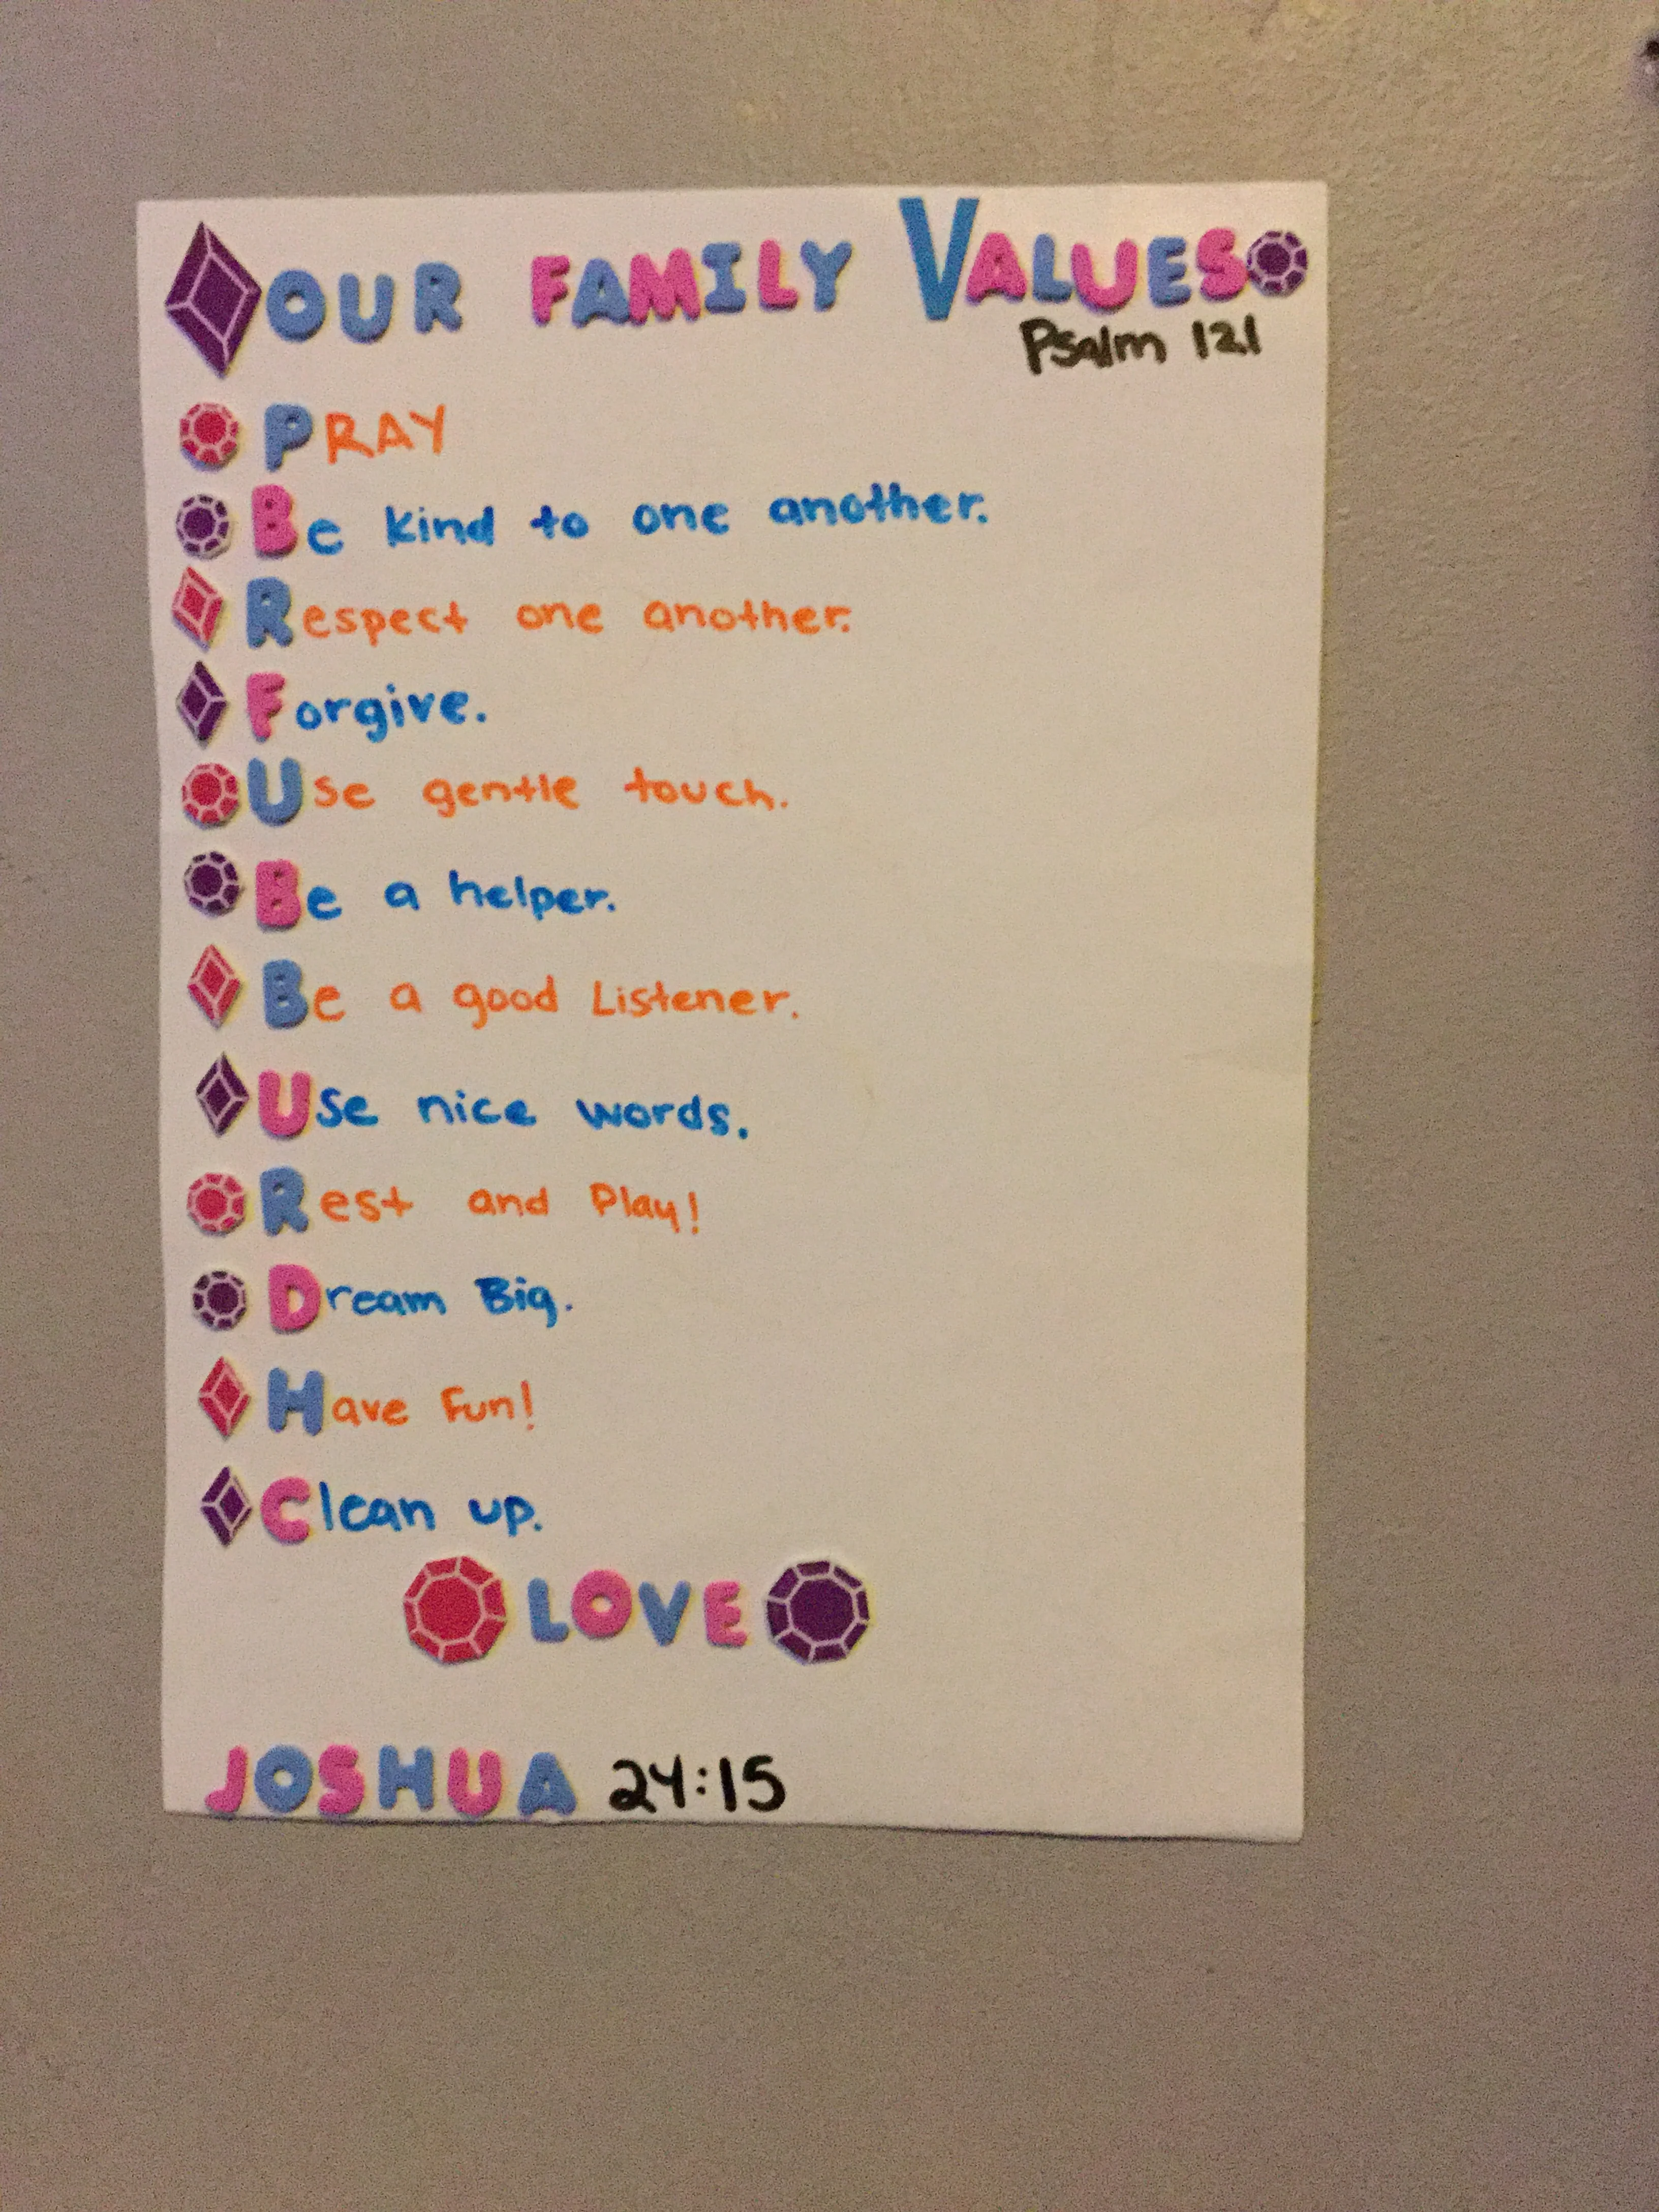 OUR FAMILY VALUES
Psalm 121
PRAY
Be kind to one another.
Respect one another.
Forgive.
Use gentle touch.
Be a helper.
Be a good Listener.
Use nice words.
Rest and Play!
Dream Big.
Have Fun!
Clean up.
LOVE
JOSHUA 24:15